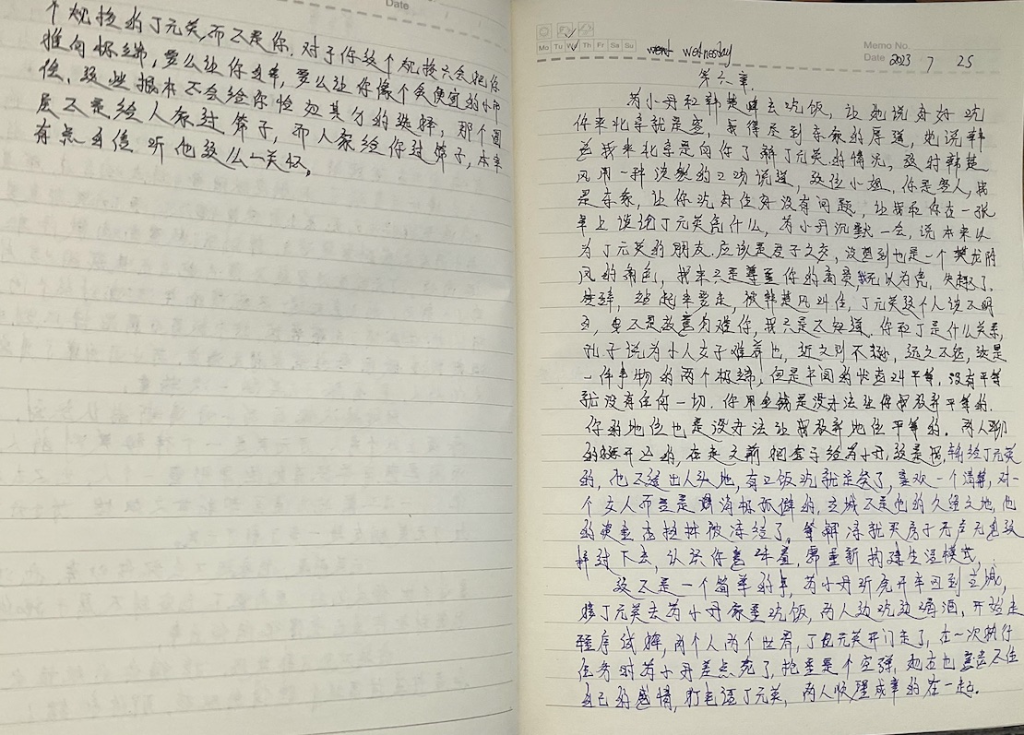 个规格的丁元英,而不是你.对于你这个规格只会把你
推向极端,要么让你过年,要么让你像个贪便宜的小市
侩.这些根本不会给你恰如其分的选择,那个圈
层不是给人家过节子,而人家给你过节子,本来
有点自信听他这么一关怀,
Date
Mo Tu We Th Fr Sa Su
wednesday
Memo No.
Date 2023 7 25
第六章
芮小丹和韩楚去吃饭,让她说好好吃
你来北京就是客,我得尽到东家的厚道,她说韩
总我来北京是向你了解丁元英的情况,这时韩楚
风用一种淡然的口吻说道,这位小姐,你是客人,我
是东家,让你吃好住好没有问题,让我和你在一张
桌上谈论丁元英凭什么,芮小丹沉默一会,说本来以
为丁元英的朋友.应该是君子之交,没想到也是一个攀龙附
凤的角色,我来只是尊重你的高贵既以为凭,失敬了.
告辞,站起来要走,被韩楚风叫住,丁元英这个人说不明
白,也不是故意为难你,我只是不知道.你和丁是什么关系,
孔子说为小人女子难养也,近之则不逊,远之不怨,这是
一件事物的两个极端,但是中间的恰当叫平等,没有平等
就没有任何一切.你用金钱是没办法让你我放弃平等的.
你的地位也是没办法让我放弃地位平等的.两人聊
的挺开心的,在走之前把盒子给芮小丹,这是我,转给丁元英
的,他不想出人头地,有口饭吃就足够了,喜欢一个清静,对一
个女人而言是 孤僻的,古城不是他的久经之地,他
的资金在柏林被冻结了,等解冻就买房子无声无息这
样过下去,认识你意味着,需重新构建生活模式,
这不是一个简单的事,芮小丹听完开车回到古城,
接丁元英去芮小丹家里吃饭,两人边吃边喝酒,开始走
程序试探,两个人两个世界,丁元英开门走了,在一次执行
任务时芮小丹差点死了,枪里是个空弹,她在也 不住
自己的感情,打电话丁元英,两人快理成章的在一起.